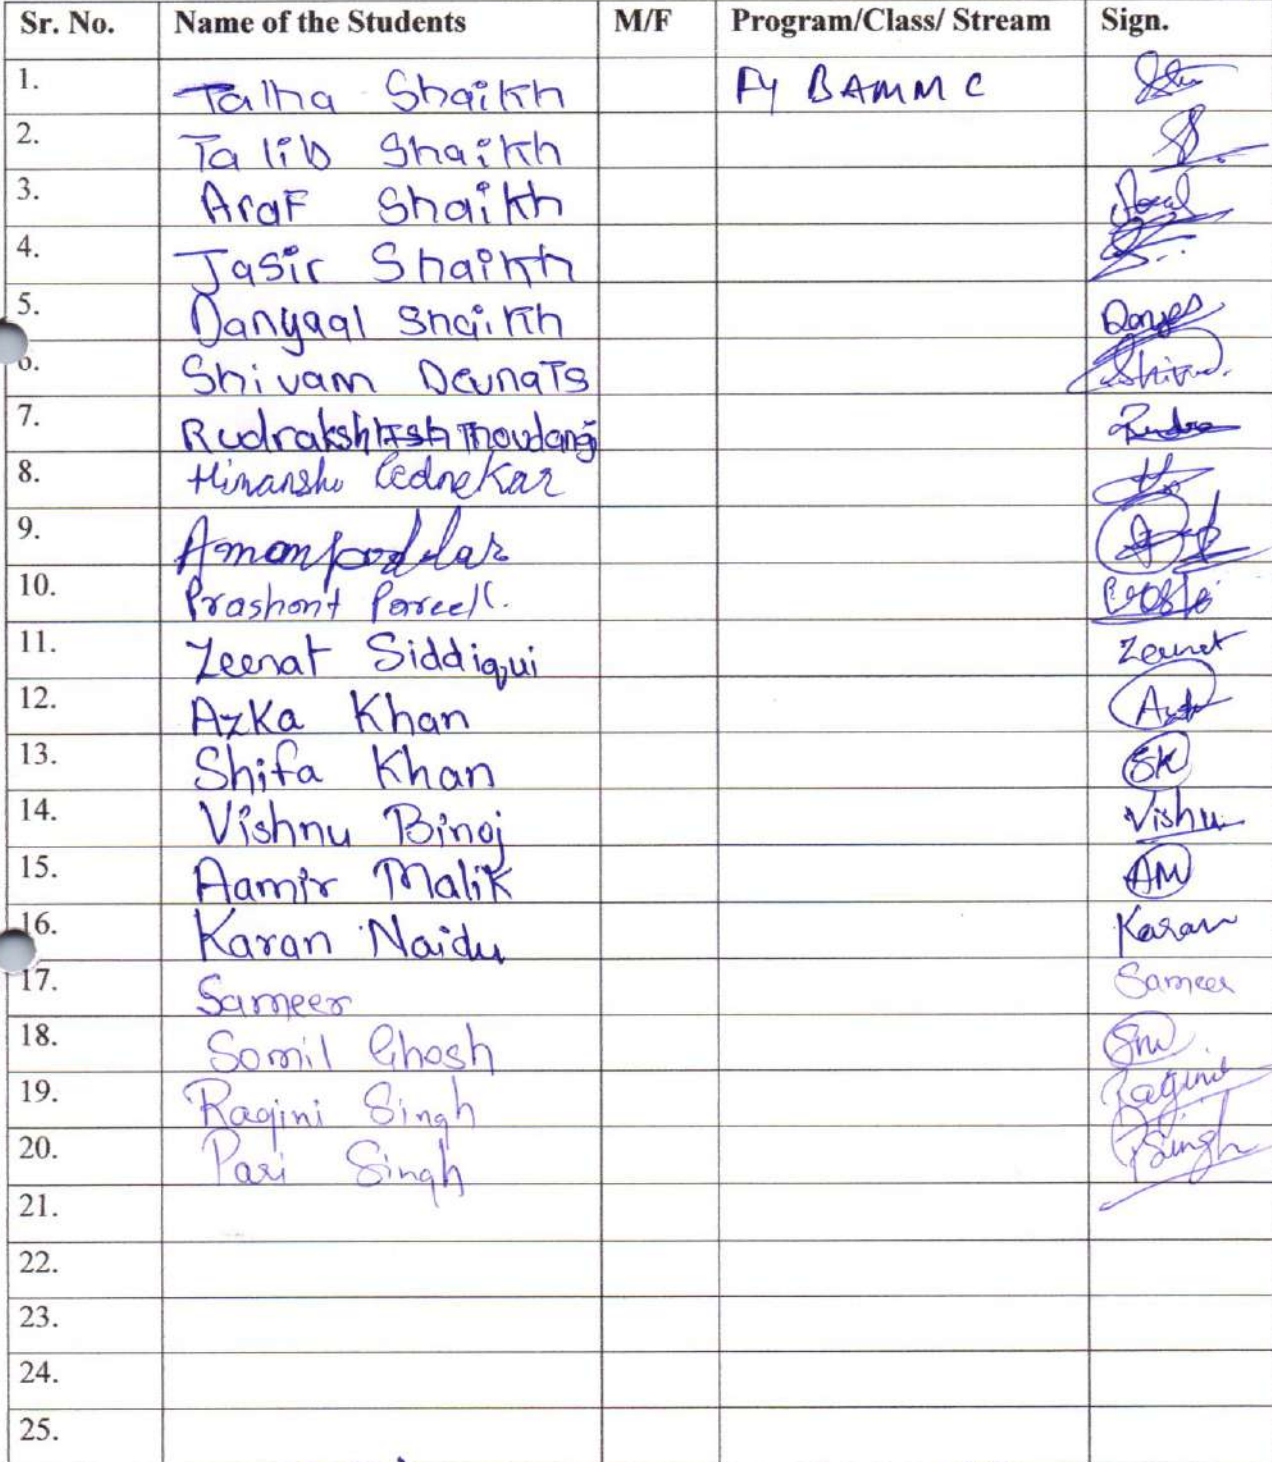 Sr. No. Name of the Students M/F Program/Class/ Stream Sign.
1. Talha Shaikh FY BAMMC
2. Talib Shaikh
3. Araf Shaikh
4. Jasir Shaikh
5. Danyaal Shaikh
6. Shivam
7.
8. Himanshu
9. Aman poddar
10. Prashant
11. Zeenat Siddiqui Zeenat
12. Azka Khan
13. Shifa Khan SK
14. Vishnu Binoj Vishnu
15. Aamir Malik AM
16. Karan Naidu Karan
17. Sameer Sameer
18. Somil Ghosh
19. Ragini Singh Ragini
20. Pari Singh PSingh
21.
22.
23.
24.
25.